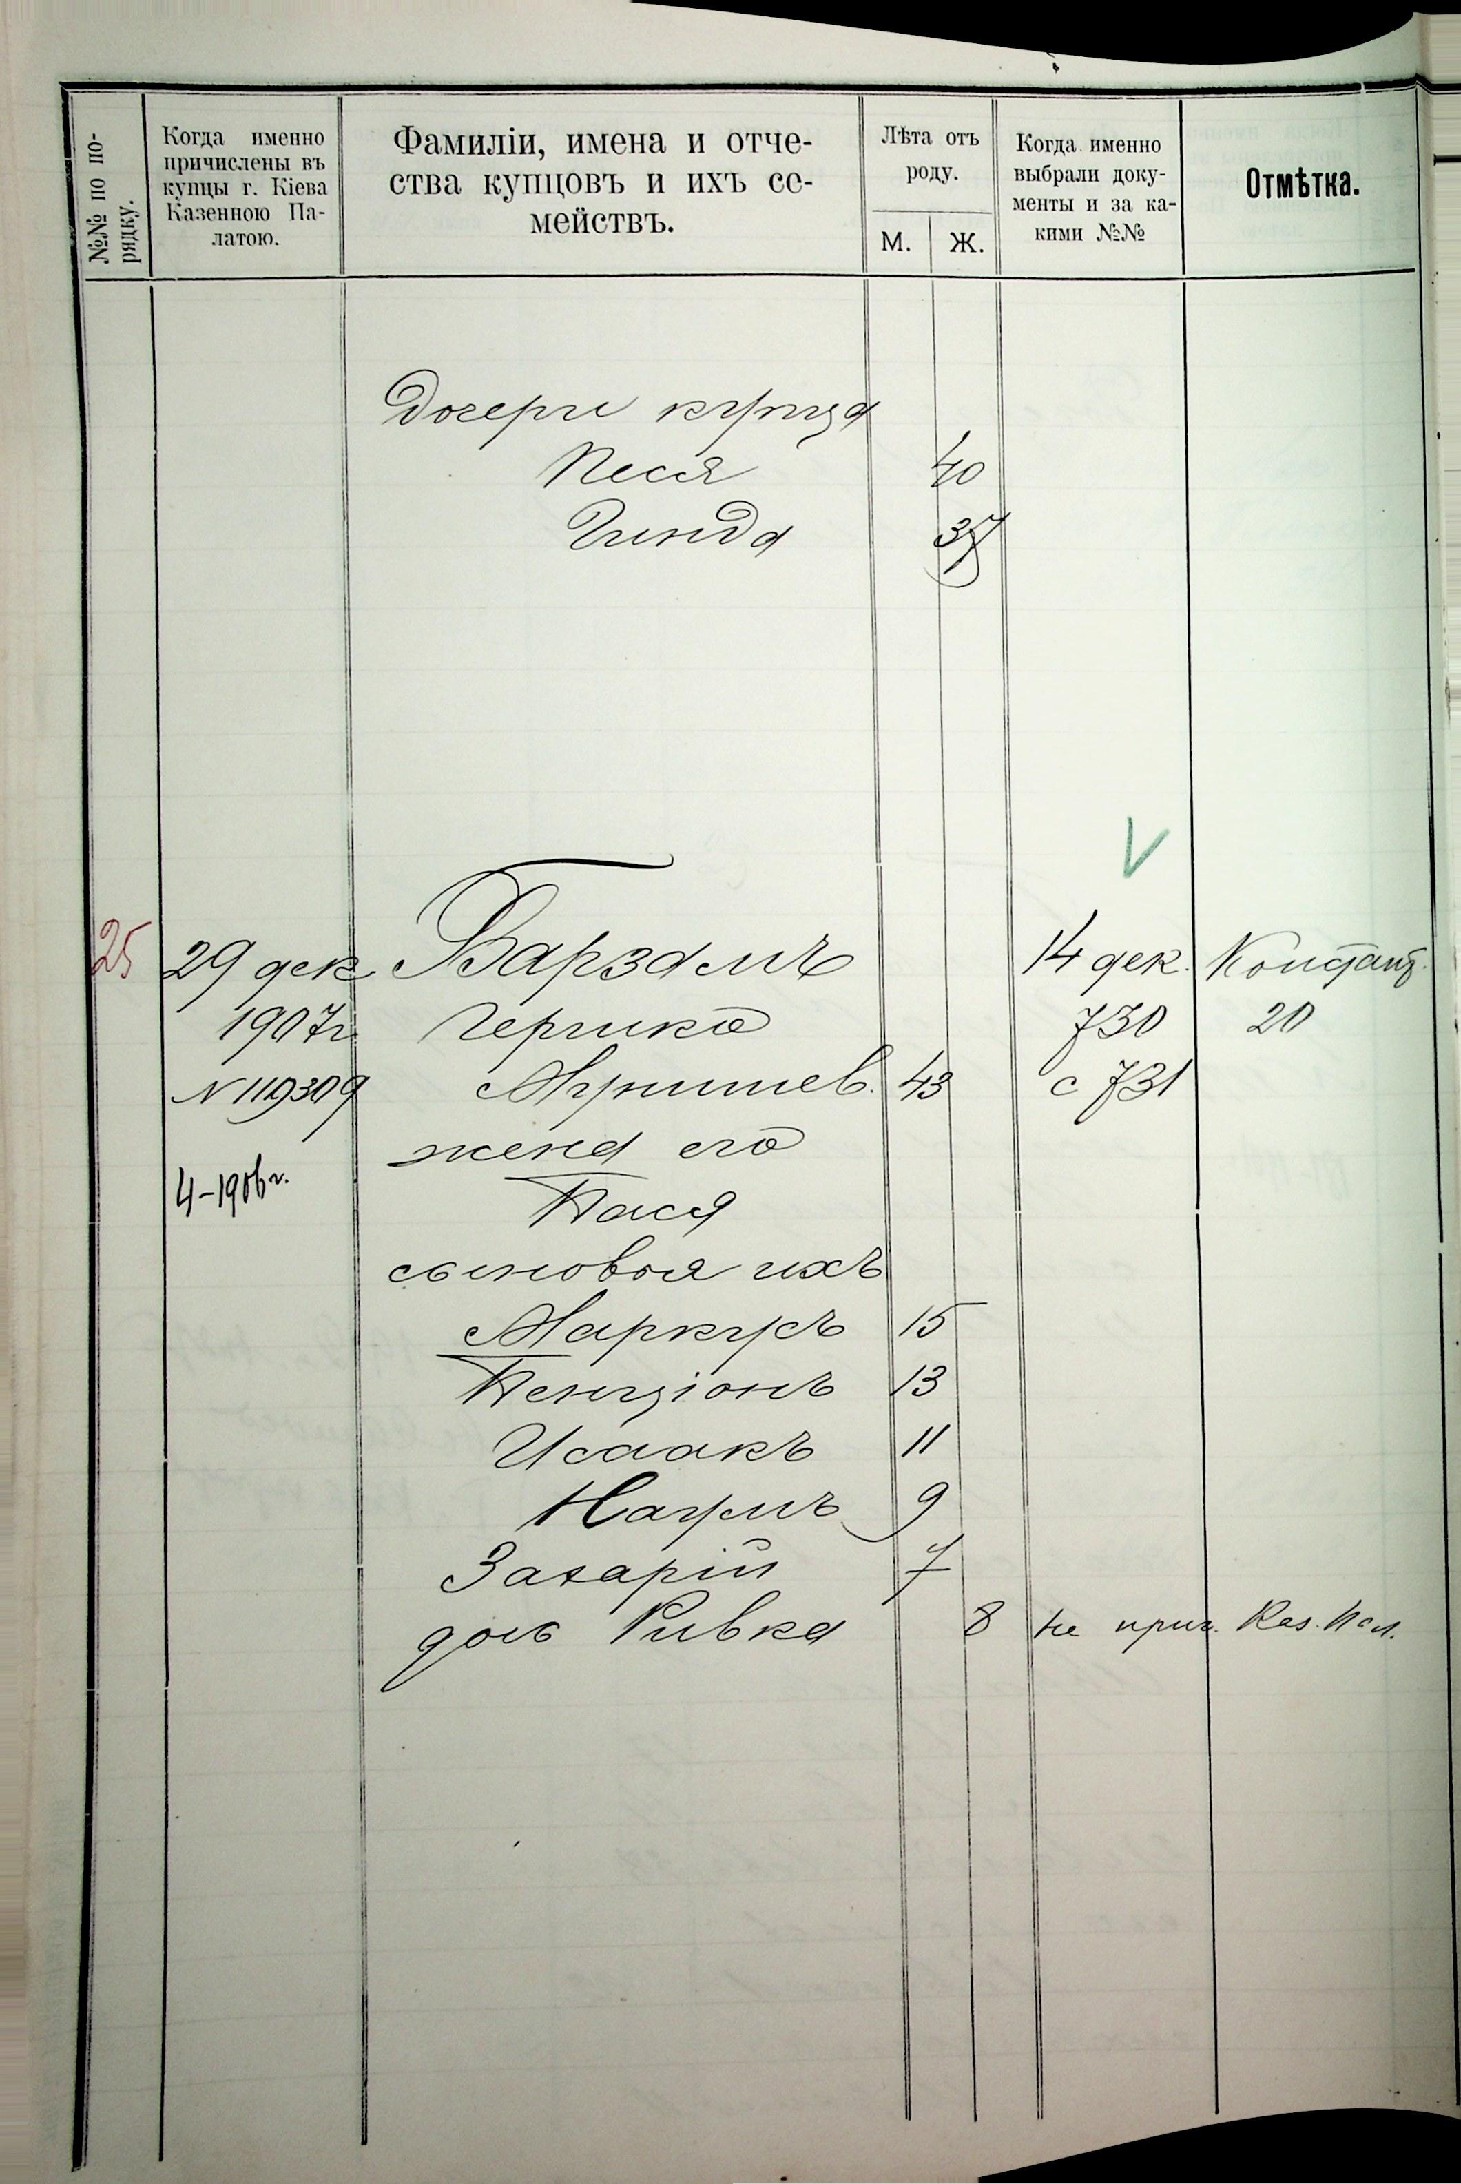 №№ по по-
рядку.
Когда именно
причислены въ
купцы г. Кіева
Казенною Па-
латою.
Фамиліи, имена и отче-
ства купцовъ и ихъ се-
мействъ.
Лѣта отъ
роду.
М. Ж.
Когда именно
выбрали доку-
менты и за ка-
кими №№
Отмѣтка.
Дочери купца
Песя 40
Гинда 37
25 29 дек Барзамъ 14 дек.
1907г Гершко 730 20
N 119309 43 с 731
жена его
4-1906г. Бася
сыновья ихъ
Маркусъ 15
Бенціонъ 13
Исаакъ 11
Наумъ 9
Захарій 7
дочь Ривка 8 не прич. Каз. Пал.